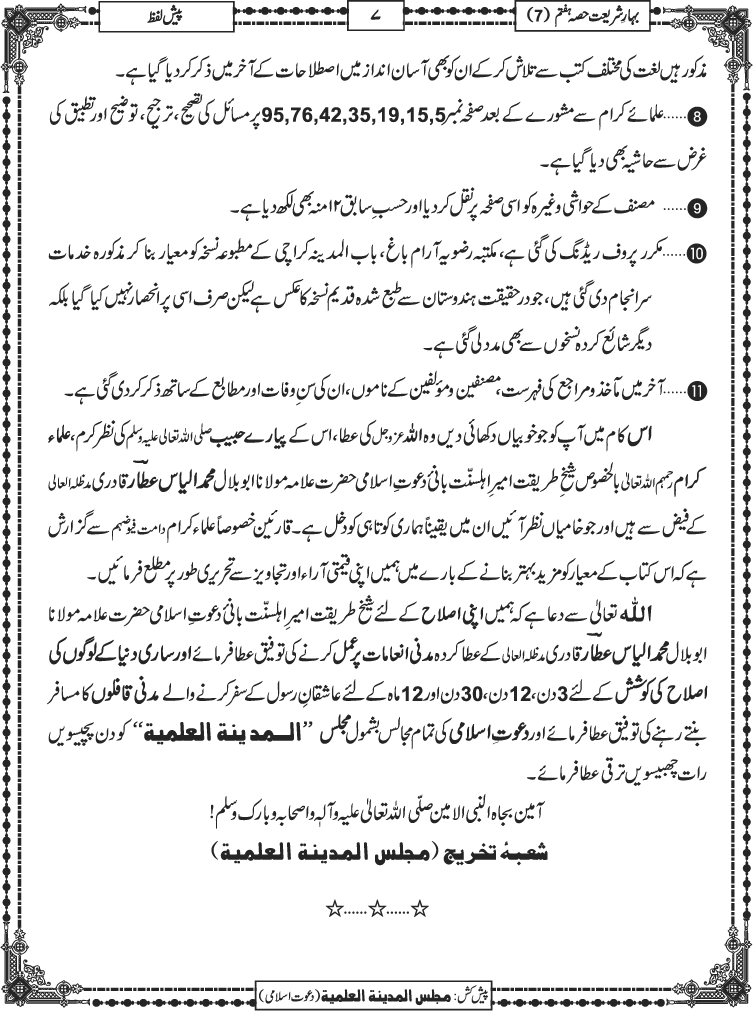 بہارِ شریعت حصہ ہفتم (7)
۷
پیش لفظ
مذکور ہیں لغت کی مختلف کتب سے تلاش کرکے ان کو بھی آسان انداز میں اصطلاحات کے آخر میں ذکر کر دیا گیا ہے۔
8......علمائے کرام سے مشورے کے بعد صفحہ نمبر 95,76,42,35,19,15,5 پر مسائل کی تصحیح، ترجیح، توضیح اور تطبیق کی
غرض سے حاشیہ بھی دیا گیا ہے۔
9...... مصنف کے حواشی وغیرہ کو اسی صفحہ پر نقل کر دیا اور حسبِ سابق ۱۲ منہ بھی لکھ دیا ہے۔
10......مکرر پروف ریڈنگ کی گئی ہے، مکتبہ رضویہ آرام باغ، باب المدینہ کراچی کے مطبوعہ نسخہ کو معیار بنا کر مذکورہ خدمات
سرانجام دی گئی ہیں، جو درحقیقت ہندوستان سے طبع شدہ قدیم نسخہ کا عکس ہے لیکن صرف اسی پر انحصار نہیں کیا گیا بلکہ
دیگر شائع کردہ نسخوں سے بھی مدد لی گئی ہے۔
11......آخر میں مآخذ و مراجع کی فہرست، مصنفین و مؤلفین کے ناموں، ان کی سنِ وفات اور مطابع کے ساتھ ذکر کر دی گئی ہے۔
اس کام میں آپ کو جو خوبیاں دکھائی دیں وہ اللہ عزوجل کی عطا، اس کے پیارے حبیب صلی اللہ تعالی علیہ وسلم کی نظر کرم، علماء
کرام رحمہم اللہ تعالیٰ بالخصوص شیخِ طریقت امیرِ اہلسنّت بانیٔ دعوتِ اسلامی حضرت علامہ مولانا ابوبلال محمد الیاس عطّار قادری مدظلہ العالی
کے فیض سے ہیں اور جو خامیاں نظر آئیں ان میں یقیناً ہماری کوتاہی کو دخل ہے۔ قارئین خصوصاً علماء کرام دامت فیوضہم سے گزارش
ہے کہ اس کتاب کے معیار کو مزید بہتر بنانے کے بارے میں ہمیں اپنی قیمتی آراء اور تجاویز سے تحریری طور پر مطلع فرمائیں۔
اللّٰہ تعالیٰ سے دعا ہے کہ ہمیں اپنی اصلاح کے لئے شیخِ طریقت امیرِ اہلسنّت بانیٔ دعوتِ اسلامی حضرت علامہ مولانا
ابوبلال محمد الیاس عطّار قادری مدظلہ العالی کے عطا کردہ مدنی انعامات پر عمل کرنے کی توفیق عطا فرمائے اور ساری دنیا کے لوگوں کی
اصلاح کی کوشش کے لئے 3 دن، 12 دن، 30 دن اور 12 ماہ کے لئے عاشقانِ رسول کے سفر کرنے والے مدنی قافلوں کا مسافر
بنتے رہنے کی توفیق عطا فرمائے اور دعوتِ اسلامی کی تمام مجالس بشمول مجلس ”المدینة العلمیة“ کو دن پچیسویں
رات چھبیسویں ترقی عطا فرمائے۔
آمین بجاہ النبی الامین صلّی اللہ تعالیٰ علیہ وآلہٖ واصحابہ وبارک وسلم!
شعبۂ تخریج (مجلس المدینة العلمیة)
☆......☆......☆
پیش کش: مجلس المدینة العلمیة (دعوت اسلامی)